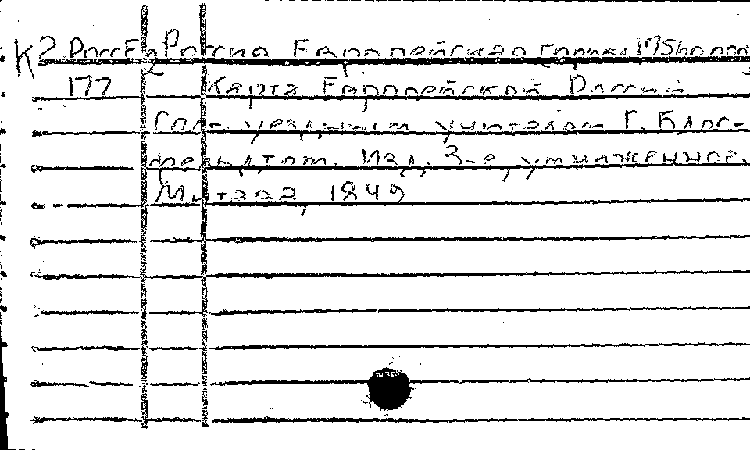 К2 РоссЕ2 Россия Европейская
177 Карта Европейской России
Сост. уездным учителем Г. Блос-
фельдтом. Изд. 3-е, умноженное.
Митава, 1849